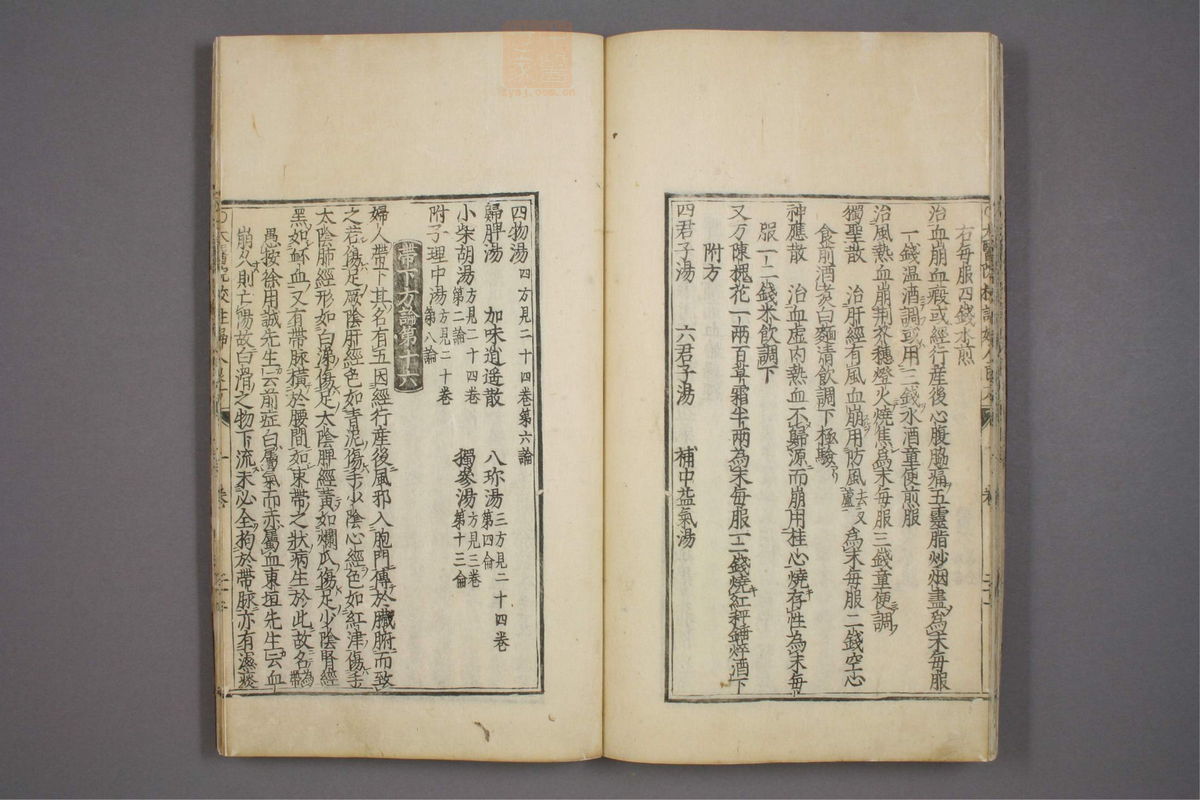 右每服四錢水煎
治血崩血瘕或經行産後心腹脇痛五靈脂炒烟盡爲末每服
一錢温酒調或用二錢水酒童便煎服
治風熱血崩荆芥穗燈火燒焦爲末每服三錢童便調
獨聖散 治肝經有風血崩用防風去叉蘆爲末每服二錢空心
食前酒煮白麵清飲調下極驗
神應散 治血虛内熱血不歸源而崩用桂心燒存性為末每
服一二錢米飲調下
附方
又方陳槐花一兩百草霜半兩為末每服一二錢燒紅秤錘焠酒下
四君子湯 六君子湯 補中益氣湯
四物湯四方見二十四卷第六論
歸脾湯 加味逍遥散 八珍湯三方見二十四卷第四侖
小柴胡湯方見二十四卷第二論 獨參湯方見三卷第十三侖
附子理中湯方見二十卷第八論
帶下方論第十六
婦人帶下其名有五因經行産後風邪入胞門傳於臟腑而致
之若傷足厥陰肝經色如青泥傷手少陰心經色如紅津傷手
太陰肺經形如白涕傷足太陰脾經黃如爛瓜傷足少陰腎經
黑如衃血又有帶脉橫於腰間如束帶之狀病生於此故名為帶
愚按徐用誠先生云前症白屬氣而赤屬血東垣先生云血
崩久則亡陽故白滑之物下流未必全拘於帶脉亦有濕痰